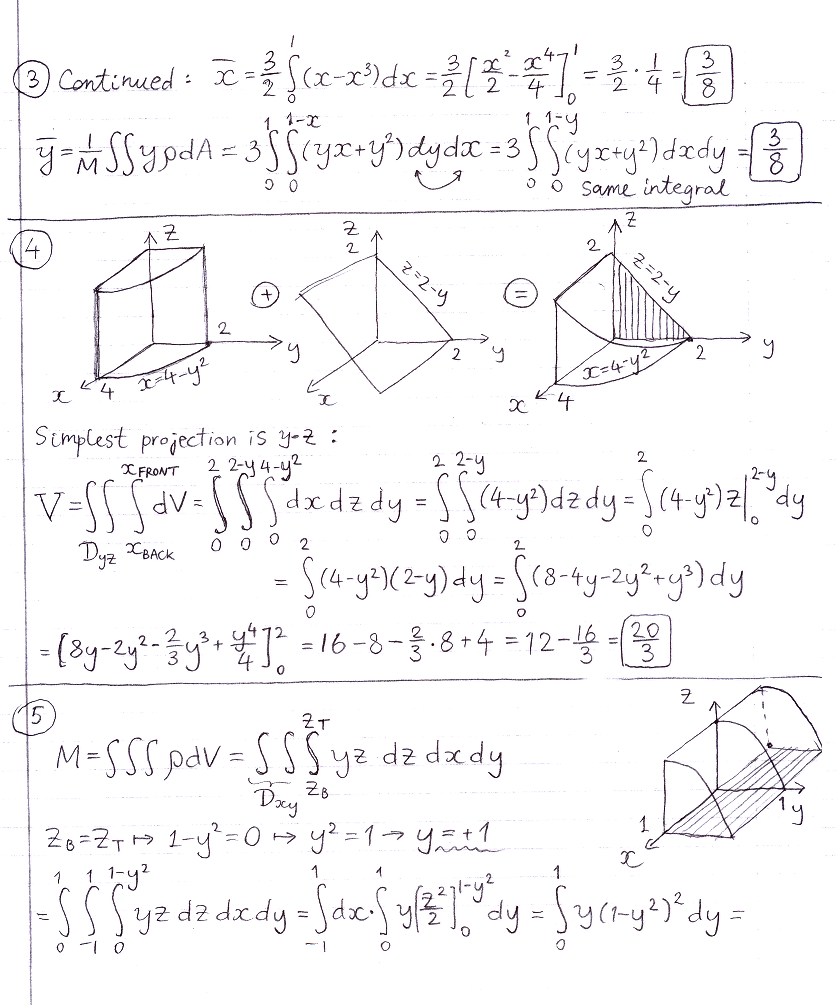 ③ Continued : x̄ = 3/2 ∫₀¹ (x-x³) dx = 3/2 [x²/2 - x⁴/4]₀¹ = 3/2 · 1/4 = 3/8
ȳ = 1/M ∬ yρ dA = 3 ∫₀¹ ∫₀^{1-x} (yx+y²) dy dx = 3 ∫₀¹ ∫₀^{1-y} (yx+y²) dx dy = 3/8
same integral
④
z 2 y x 4 x=4-y²
+
z 2 z=2-y 2 y x
=
z 2 z=2-y 2 y x 4 x=4-y²
Simplest projection is y-z :
V = ∬_{D_yz} ∫_{x BACK}^{x FRONT} dV = ∫₀² ∫₀^{2-y} ∫₀^{4-y²} dx dz dy = ∫₀² ∫₀^{2-y} (4-y²) dz dy = ∫₀² (4-y²) z |₀^{2-y} dy
= ∫₀² (4-y²)(2-y) dy = ∫₀² (8-4y-2y²+y³) dy
= [8y-2y²-2/3 y³ + y⁴/4]₀² = 16-8-2/3·8+4 = 12-16/3 = 20/3
⑤
z 1 y 1 x
M = ∭ ρ dV = ∬_{D_xy} ∫_{z_B}^{z_T} yz dz dx dy
z_B = z_T ↦ 1-y² = 0 ↦ y² = 1 → y = +1
= ∫₀¹ ∫₋₁¹ ∫₀^{1-y²} yz dz dx dy = ∫₋₁¹ dx · ∫₀¹ y [z²/2]₀^{1-y²} dy = ∫₀¹ y(1-y²)² dy =